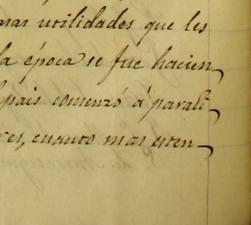 mas utilidades que les
la época se fue hacien-
pais comenzó á parali-
cuanto mas esten-